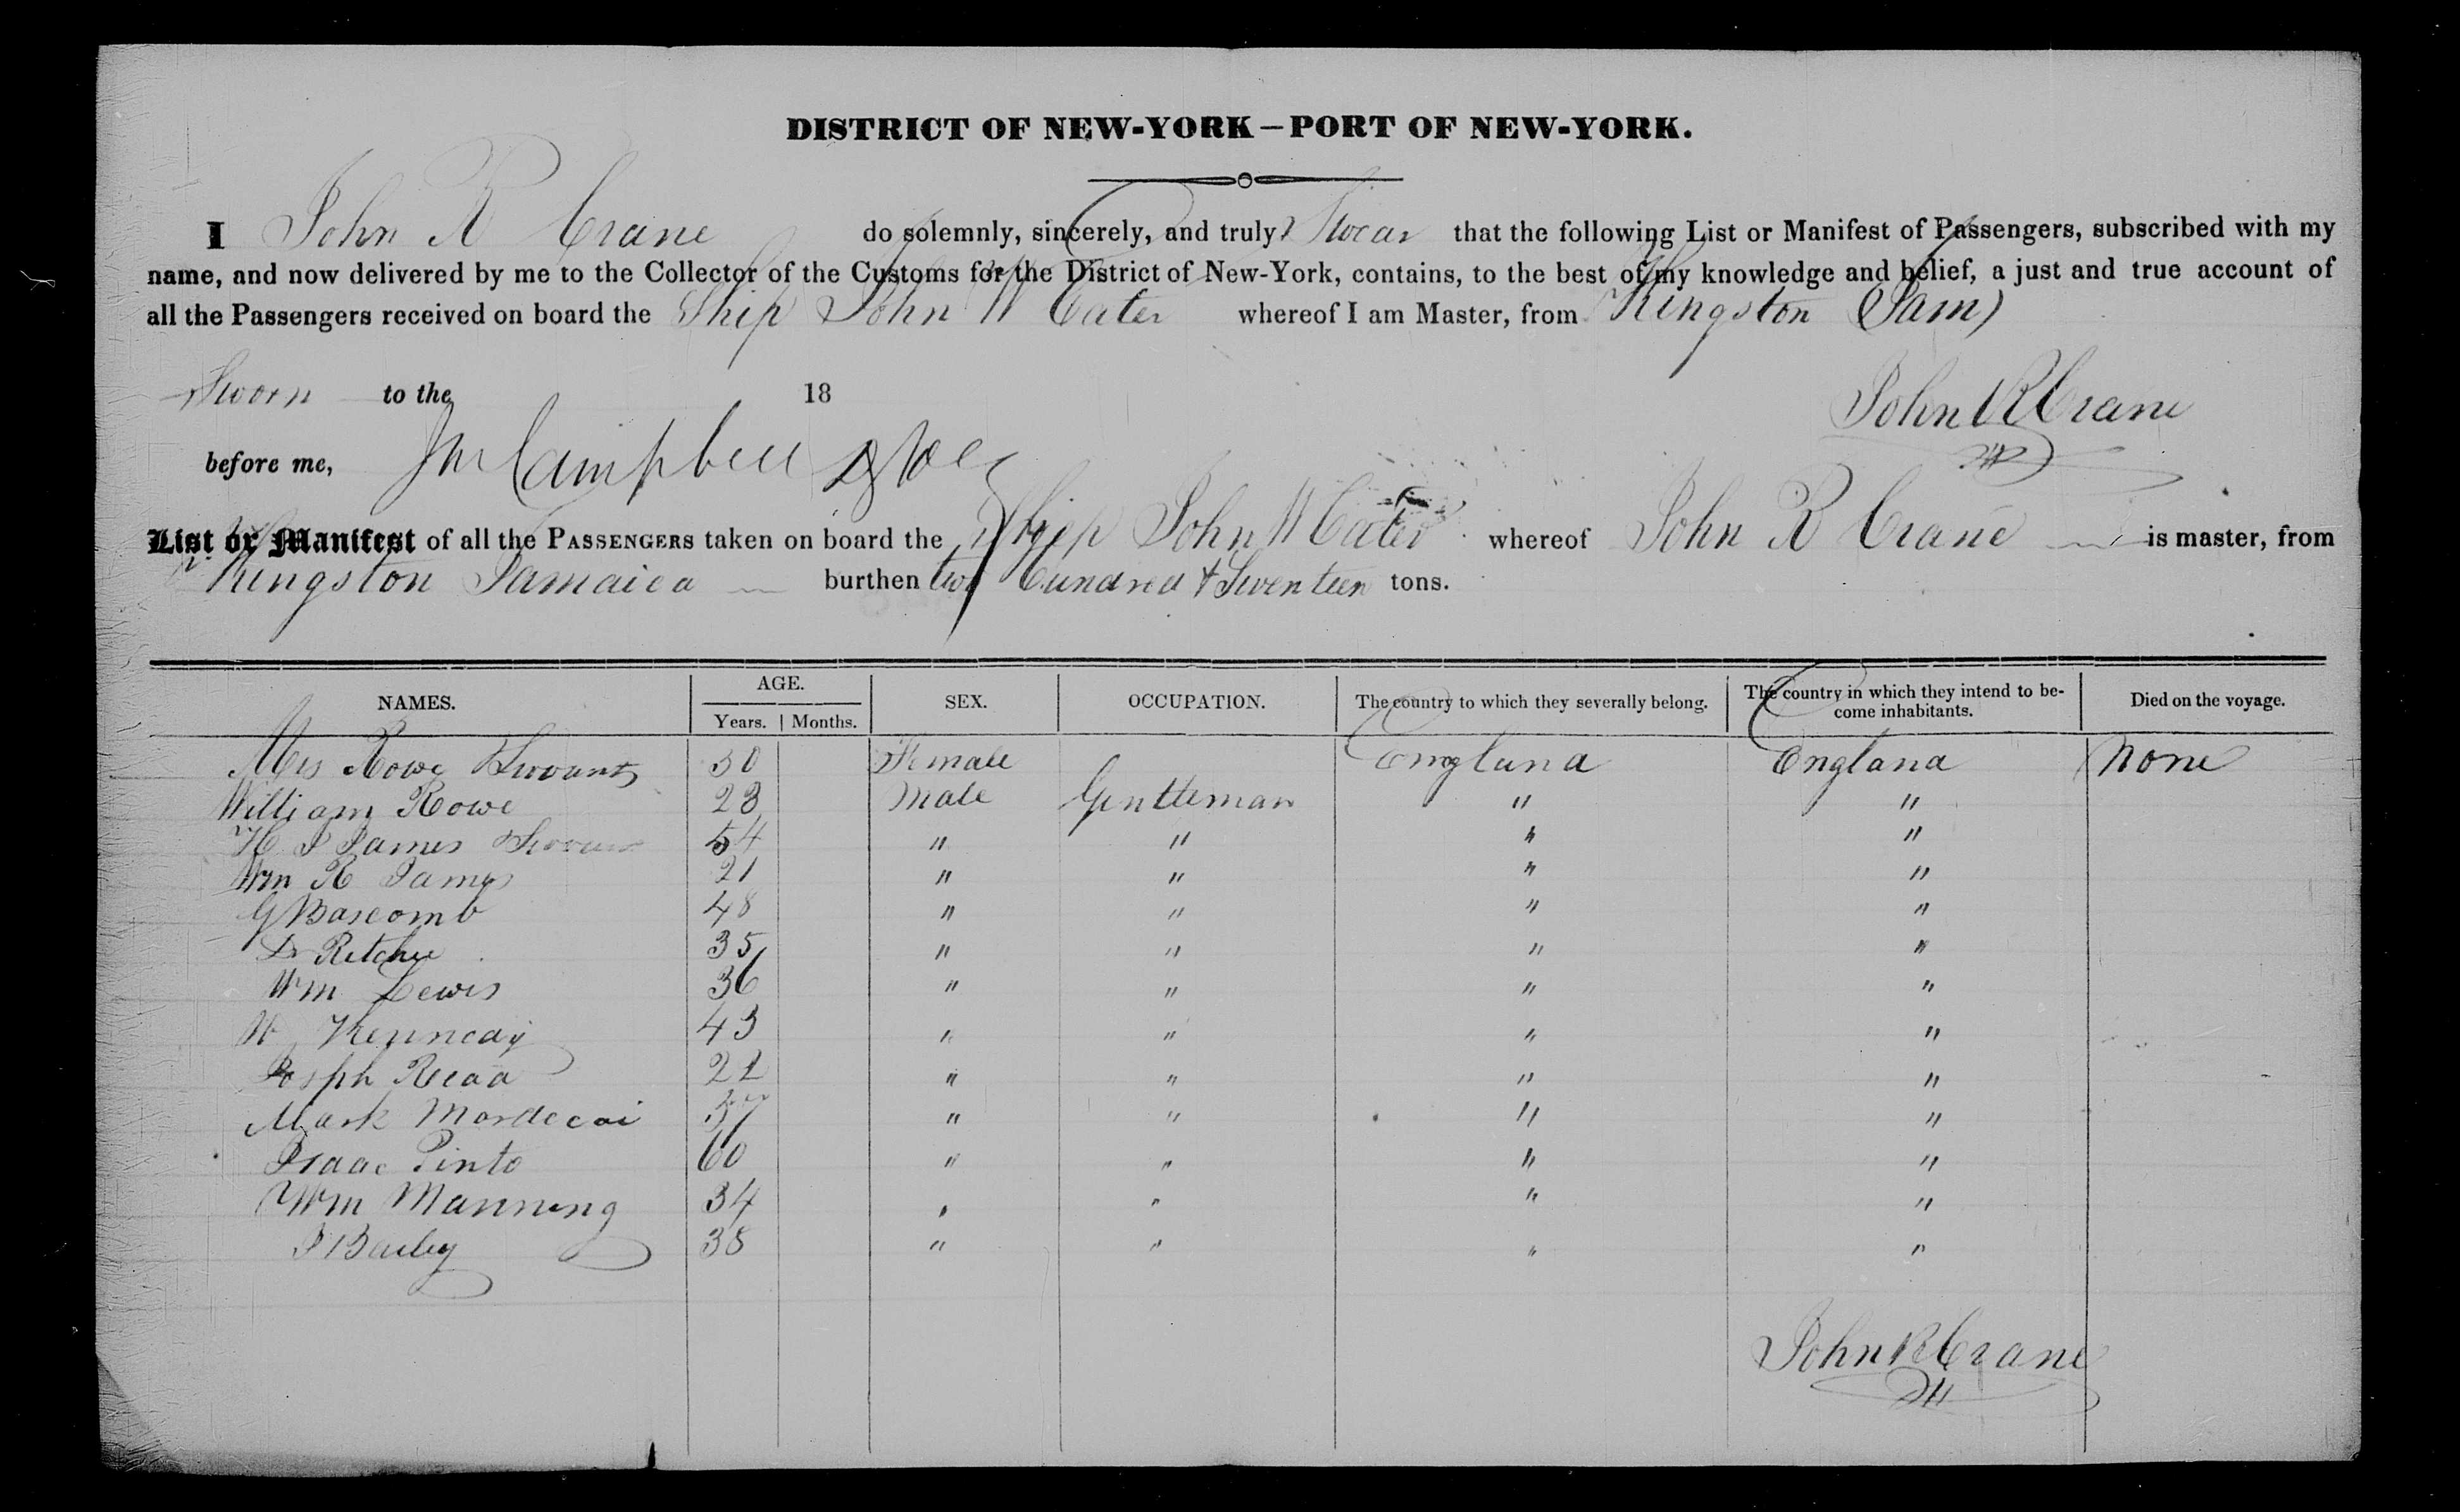 DISTRICT OF NEW-YORK—PORT OF NEW-YORK.
I John R Crane do solemnly, sincerely, and truly Swear that the following List or Manifest of Passengers, subscribed with my
name, and now delivered by me to the Collector of the Customs for the District of New-York, contains, to the best of my knowledge and belief, a just and true account of
all the Passengers received on board the Ship John W Cater whereof I am Master, from Kingston (Jam)
Sworn to the 18
John R Crane
before me, Campbell
List or Manifest of all the PASSENGERS taken on board the Ship John W Cater whereof John R Crane is master, from
Kingston Jamaica burthen two hundred & Seventeen tons.
NAMES. AGE. SEX. OCCUPATION. The country to which they severally belong. The country in which they intend to be- Died on the voyage.
Years. Months. come inhabitants.
Mrs Rowe & Servants 30 Female England England None
William Rowe 23 Male Gentleman " "
H J James & Servant 54 " " " "
Wm R James 21 " " " "
G Bascomb 48 " " " "
Dr Ritchie 35 " " " "
Wm Lewis 36 " " " "
W 43 " " " "
22 " " " "
Mark Mordecai 37 " " " "
Isaac Pinto 60 " " " "
Wm Manning 34 " " " "
J Bailey 38 " " " "
John R Crane